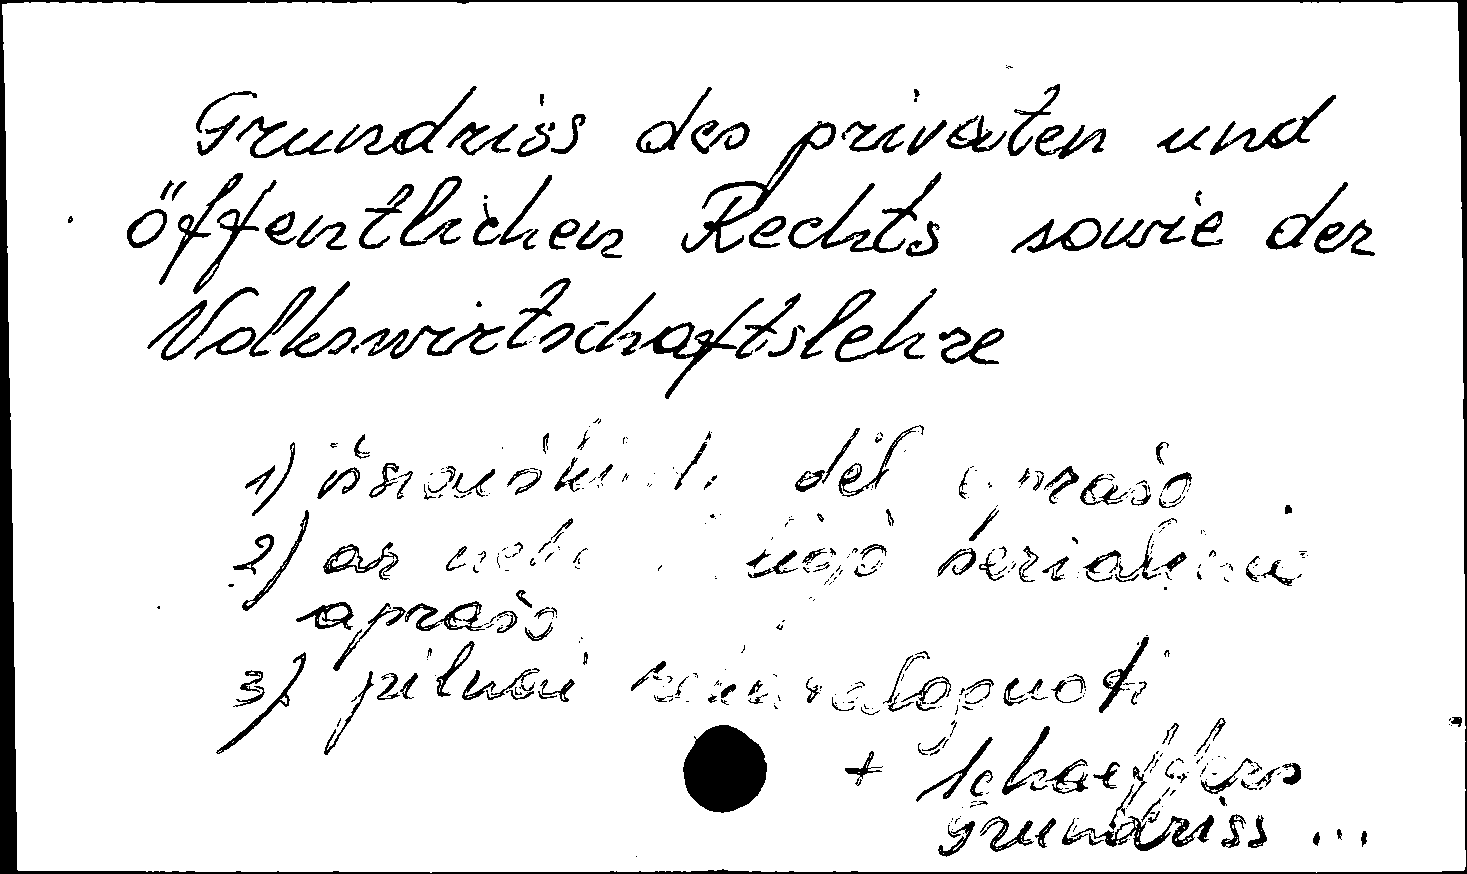 Grundriss des privaten und
öffentlichen Rechts sowie der
Volkswirtschaftslehre
1) išsiaiškinti dėl aprašo
2) ar serialiniu
aprašo
3) pilnai rekataloguoti
+ Schaeffers
Grundriss ...